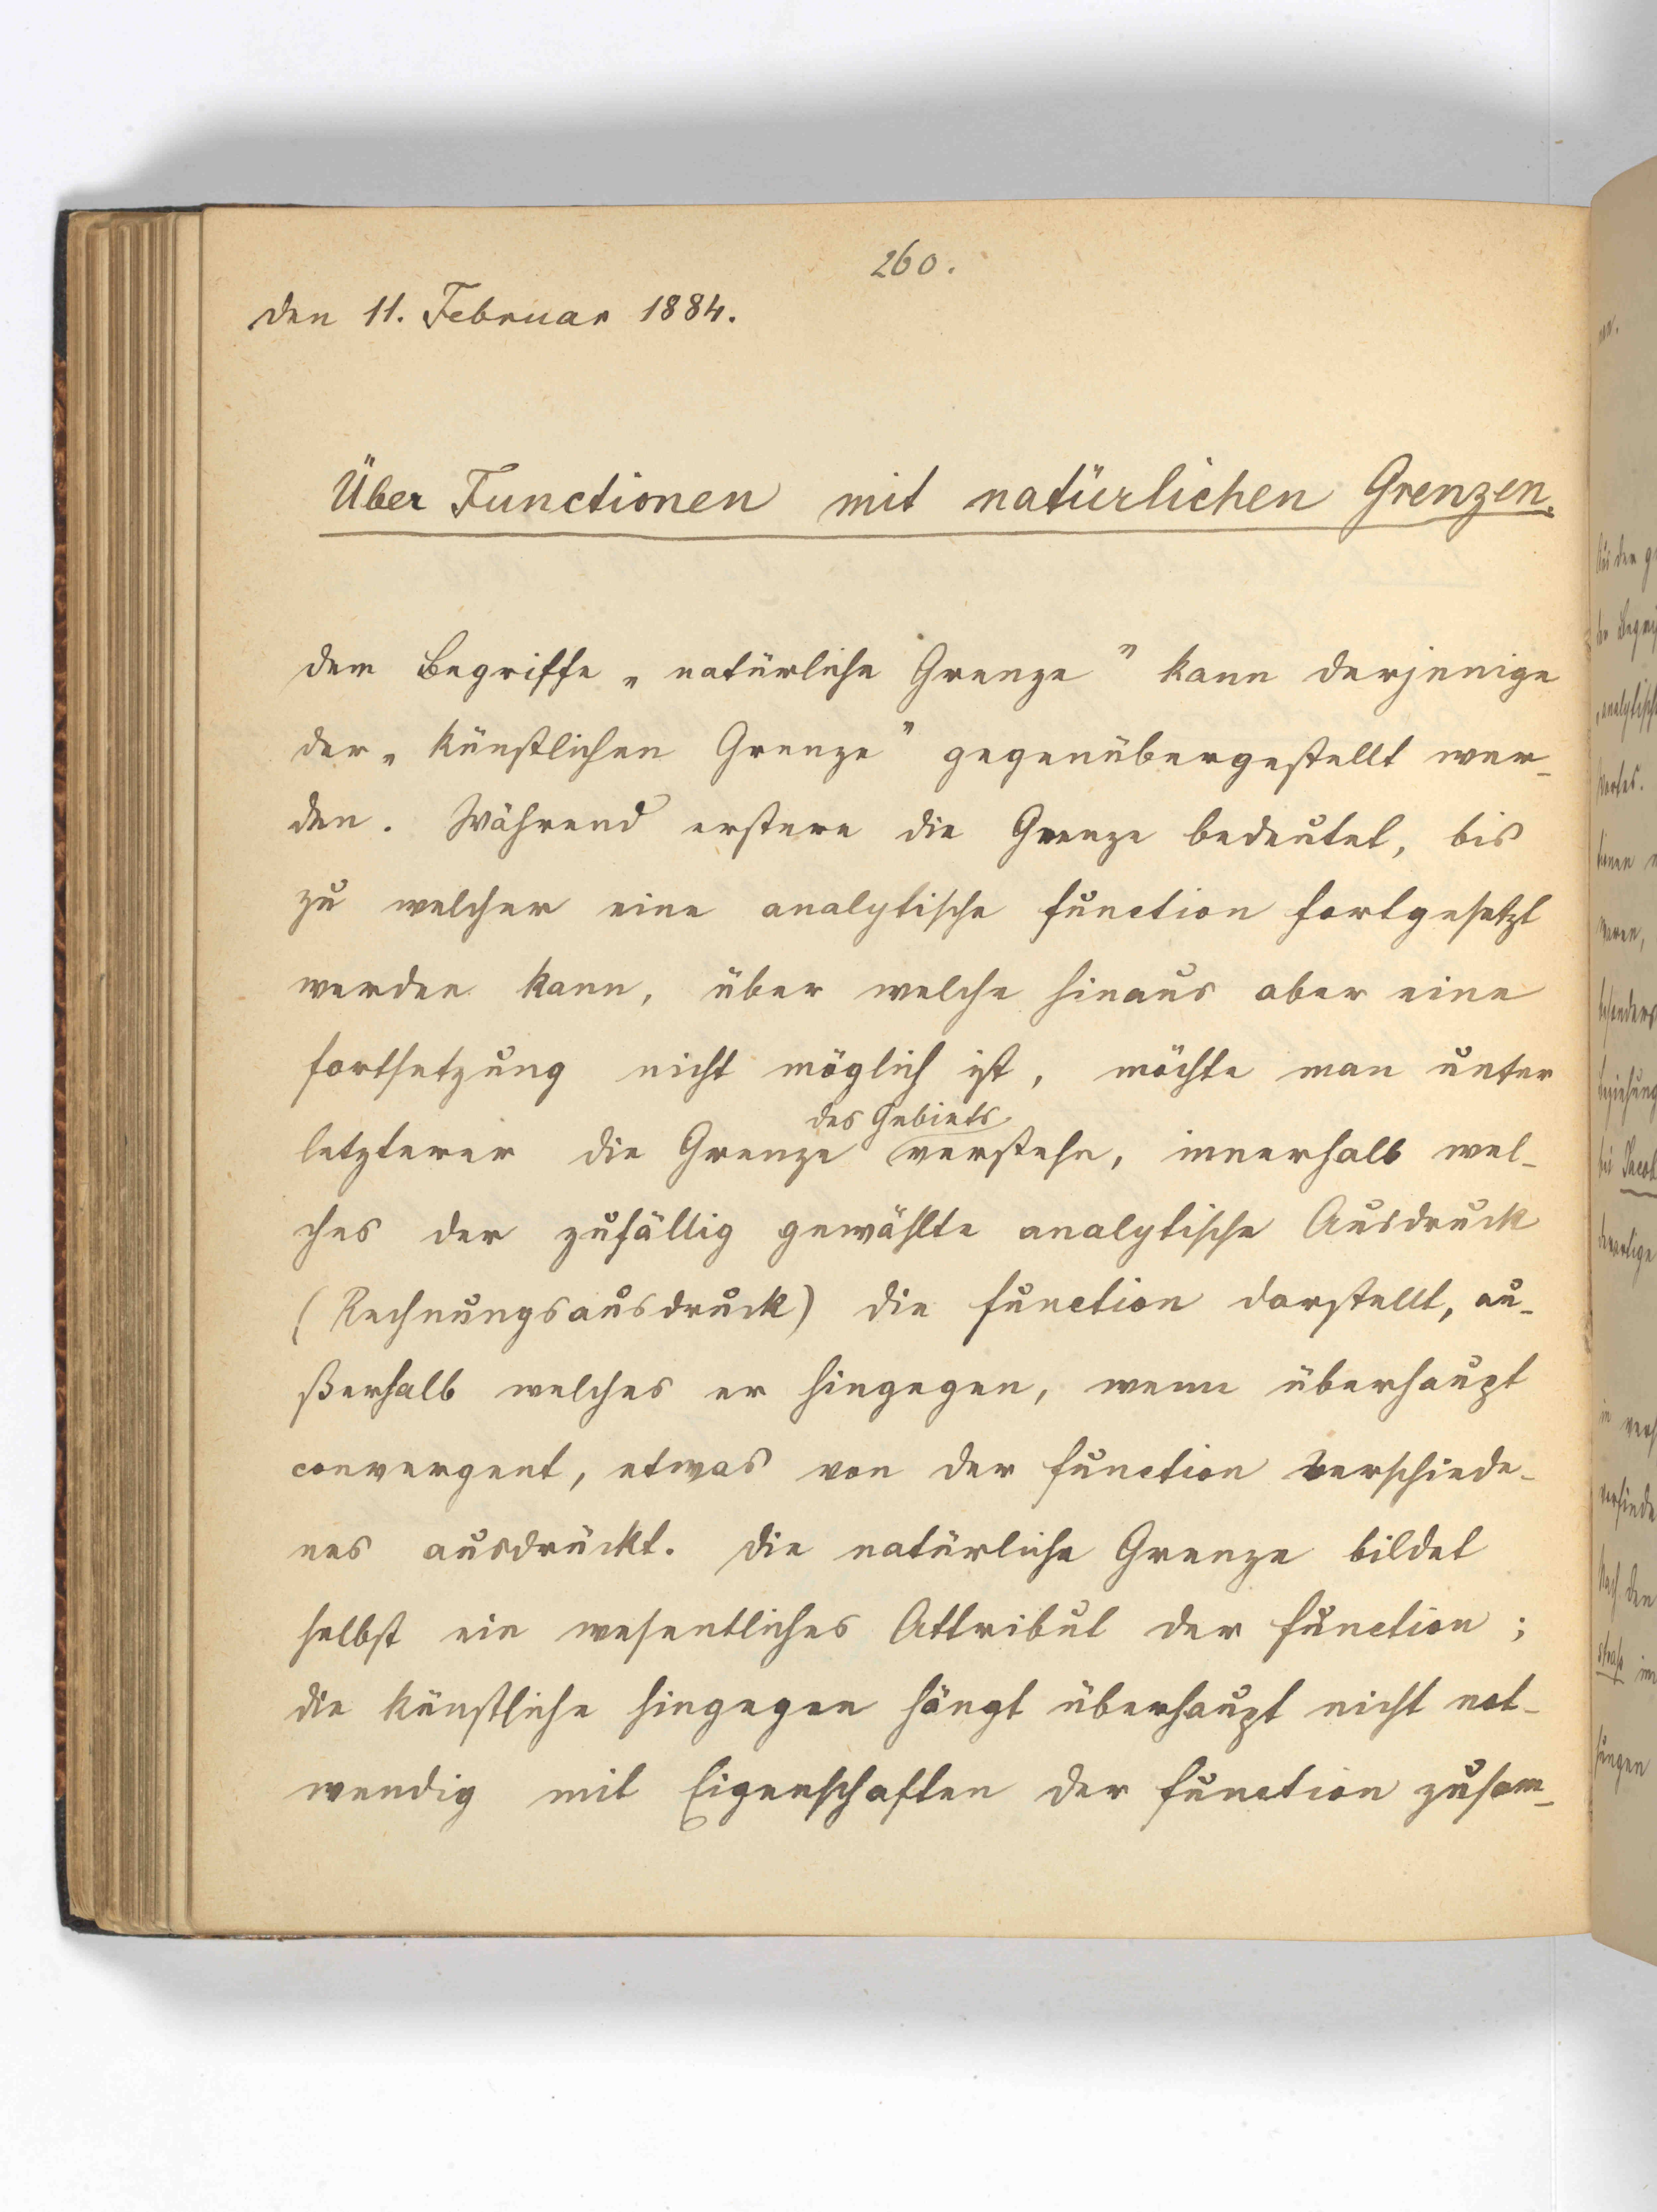 260.
Den 11. Februar 1884.
Über Functionen mit natürlichen Grenzen.
Dem Begriffe „natürliche Grenze" kann derjenige
der „künstlichen Grenze" gegenübergestellt wer-
den. Während erstere die Grenze bedeutet, bis
zu welcher eine analytische Function fortgesetzt
werden kann, über welche hinaus aber eine
Fortsetzung nicht möglich ist, möchte man unter
des Gebiets
letzterer die Grenze verstehn, innerhalb wel-
ches der zufällig gewählte analytische Ausdruck
(Rechnungsausdruck) die Function darstellt, au-
ßerhalb welches er hingegen, wenn überhaupt
convergent, etwas von der Function verschiede-
nes ausdrückt. Die natürliche Grenze bildet
selbst ein wesentliches Attribut der Function;
die künstliche hingegen hängt überhaupt nicht not-
wendig mit Eigenschaften der Function zusam-